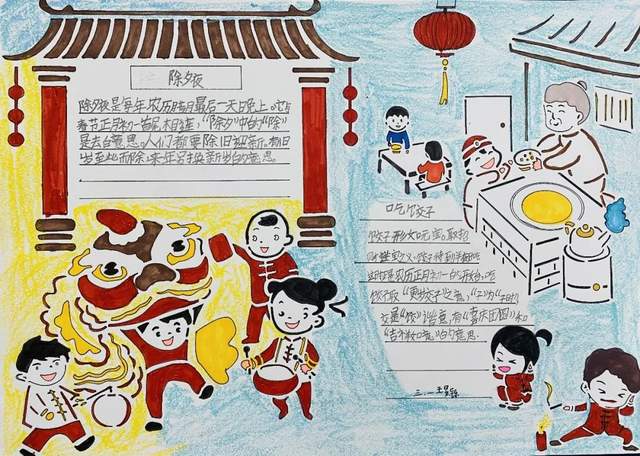 除夕夜
除夕夜是每年农历腊月最后一天晚上。它与
春节正月初一首尾相连，“除夕”中的“除”
是去的意思。人们都要除旧迎新。旧
岁至此而除，来年另换新岁的意思。
吃饺子
饺子形如元宝。取招
财进宝义。饺子
农历正月初一
饺子取“更岁交子”之意，“子”为“子时”
交通“饺”谐音，有“喜庆团圆”和
“吉祥如意”的意思。
三.一王